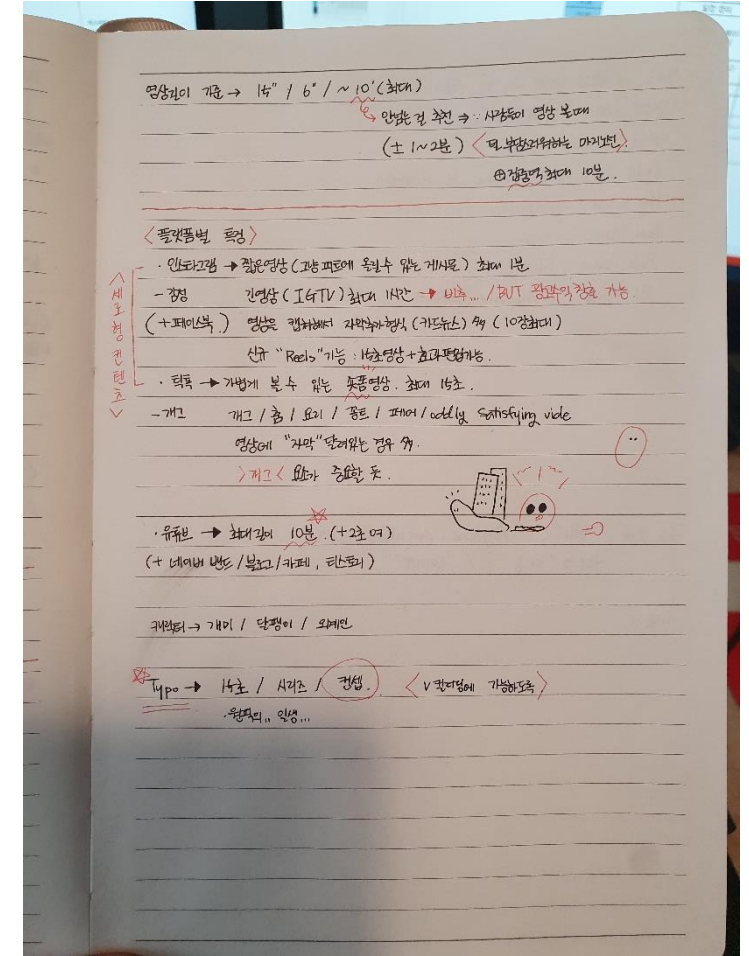 영상길이 기준 → 15" / 6" / ~ 10' (최대)
안넘는 걸 추천 ⇒ ∵ 사람들이 영상 볼때
(± 1~2분) < 덜 부담스러워하는 마지노선 >
⊕ 집중력 최대 10분.
< 플랫폼별 특징 >
· 인스타그램 → 짧은영상 (그냥 피드에 올릴수 있는 게시물) 최대 1분
- 감성 긴영상 (IGTV) 최대 1시간 → 비추... / BUT 광고수익 창출 가능
(+페이스북) 영상은 캡쳐해서 자막추가 형식 (카드뉴스) (10장최대)
신규 "Reels" 기능 : 15초영상 + 효과 가능.
· 틱톡 → 가볍게 볼 수 있는 숏폼영상. 최대 15초.
- 개그 개그 / 춤 / 요리 / 폰트 / 페어 / oddly satisfying vide
영상에 "자막" 달려있는 경우
> 개그 < 요소가 중요할 듯.
< 세로형 컨텐츠 >
· 유튜브 → 최대길이 10분. (+2초 여)
(+ 네이버 밴드 / 블로그 / 카페, 티스토리)
캐릭터 → 개미 / 달팽이 / 외계인
Typo → 15초 / 시리즈 / 컨셉. < V 컬러링에 가능하도록 >
일생...